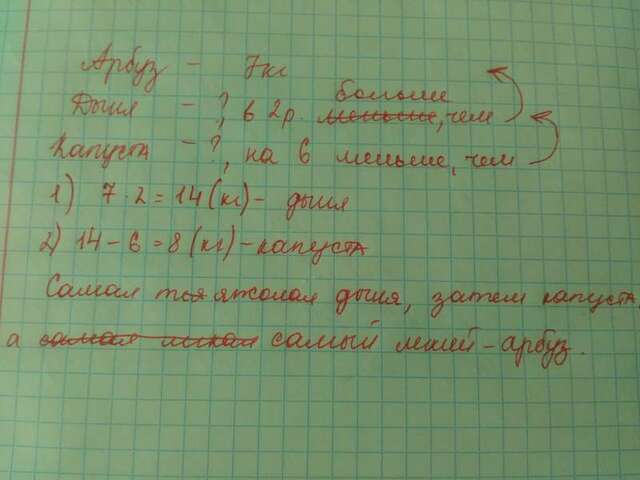 Арбуз - 7кг
больше
Дыня - ?, в 2р. меньше, чем
Капуста - ?, на 6 меньше, чем
1) 7 · 2 = 14 (кг) - дыня
2) 14 - 6 = 8 (кг) - капуста
Самая тяжолая дыня, затем капуста,
а самая лихкая самый лехкий - арбуз.